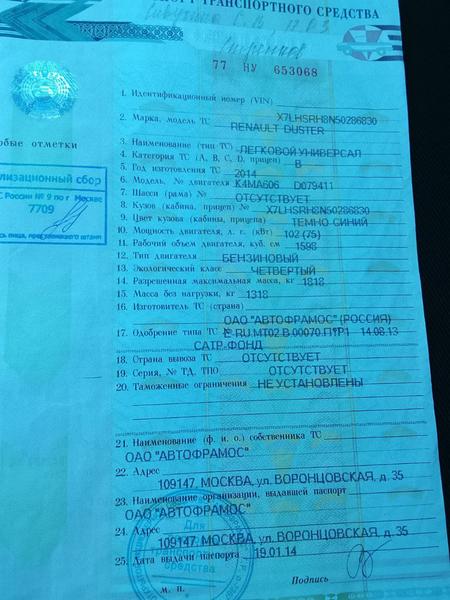 ТРАНСПОРТНОГО СРЕДСТВА
77 НУ 653068
1. Идентификационный номер (VIN) X7LHSRH8N50286830
2. Марка, модель ТС RENAULT DUSTER
3. Наименование (тип ТС) ЛЕГКОВОЙ УНИВЕРСАЛ
4. Категория ТС (А, В, С, D, прицеп) В
5. Год изготовления ТС 2014
6. Модель, № двигателя K4MA606 D079411
7. Шасси (рама) № ОТСУТСТВУЕТ
8. Кузов (кабина, прицеп) № X7LHSRH8N50286830
9. Цвет кузова (кабины, прицепа) ТЕМНО-СИНИЙ
10. Мощность двигателя, л. с. (кВт) 102 (75)
11. Рабочий объем двигателя, куб. см 1598
12. Тип двигателя БЕНЗИНОВЫЙ
13. Экологический класс ЧЕТВЕРТЫЙ
14. Разрешенная максимальная масса, кг 1818
15. Масса без нагрузки, кг 1318
16. Изготовитель ТС (страна)
ОАО "АВТОФРАМОС" (РОССИЯ)
17. Одобрение типа ТС № E-RU.MT02.B.00070.П1Р1 14.08.13
САТР-ФОНД
18. Страна вывоза ТС ОТСУТСТВУЕТ
19. Серия, № ТД, ТПО ОТСУТСТВУЕТ
20. Таможенные ограничения НЕ УСТАНОВЛЕНЫ
21. Наименование (ф. и. о.) собственника ТС
ОАО "АВТОФРАМОС"
22. Адрес
109147, МОСКВА, ул. ВОРОНЦОВСКАЯ, д. 35
23. Наименование организации, выдавшей паспорт
ОАО "АВТОФРАМОС"
24. Адрес
109147, МОСКВА, ул. ВОРОНЦОВСКАЯ, д. 35
25. Дата выдачи паспорта 19.01.14
Подпись
М. П.
Для
транспорт
средства
обые отметки
лизационный сбор
С России № 9 по г Москве
7709